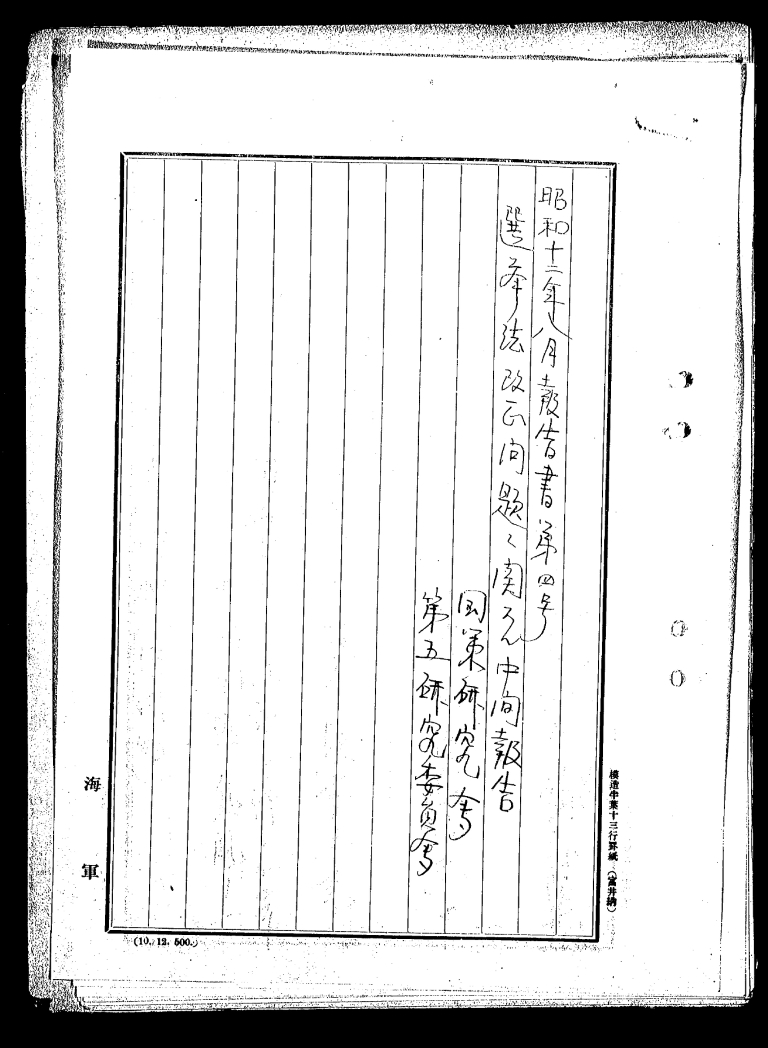 昭和十二年八月報告書第四号
選挙法改正問題ニ関スル中間報告
国策研究会
第五研究委員会
海軍
模造半葉十三行罫紙 (富井納)
(10. 12. 500.)